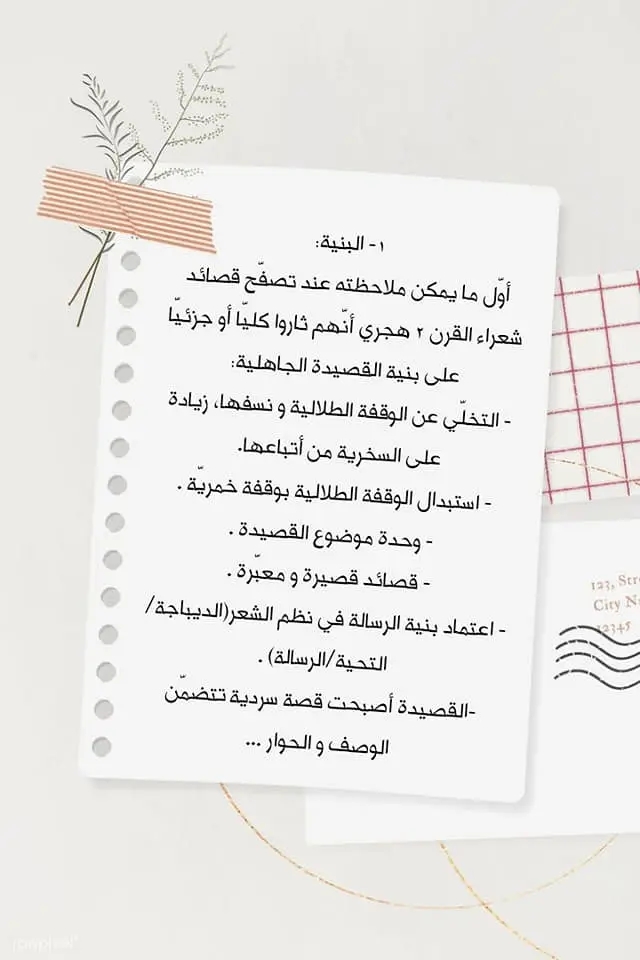 ١- البنية:
أوّل ما يمكن ملاحظته عند تصفّح قصائد
شعراء القرن ٢ هجري أنّهم ثاروا كليّا أو جزئيّا
على بنية القصيدة الجاهلية:
- التخلّي عن الوقفة الطلالية و نسفها، زيادة
على السخرية من أتباعها.
- استبدال الوقفة الطلالية بوقفة خمريّة .
- وحدة موضوع القصيدة .
- قصائد قصيرة و معبّرة .
- اعتماد بنية الرسالة في نظم الشعر(الديباجة/
التحية/الرسالة) .
-القصيدة أصبحت قصة سردية تتضمّن
الوصف و الحوار ...
123, Stre
City N
12345
rawpixel